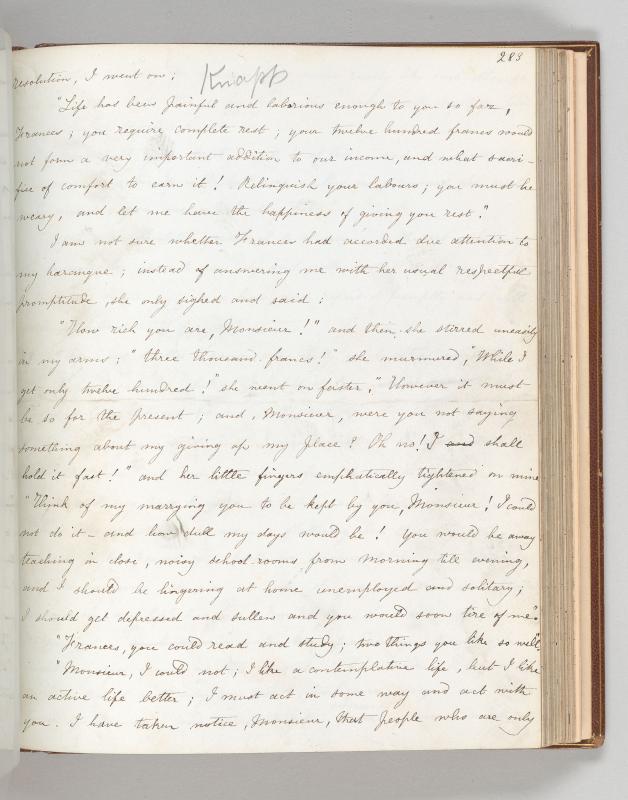 283
resolution, I went on;
Knapp
"Life has been painful and laborious enough to you so far,
Frances; you require complete rest; your twelve hundred francs would
not form a very important addition to our income, and what sacri-
fice of comfort to earn it! Relinquish your labours; you must be
weary, and let me have the happiness of giving you rest."
I am not sure whether Frances had accorded due attention to
my harangue; instead of answering me with her usual respectful
promptitude, she only sighed and said:
"How rich you are, Monsieur!" and then she stirred uneasily
in my arms; "three thousand francs!" she murmured, "While I
get only twelve hundred!" she went on faster, "However it must
be so for the present; and, Monsieur, were you not saying
something about my giving up my place? Oh no! I and shall
hold it fast!" and her little fingers emphatically tightened on mine
"Think of my marrying you to be kept by you, Monsieur! I could
not do it - and how dull my days would be! you would be away
teaching in close, noisy school-rooms from morning till evening,
and I should be lingering at home unemployed and solitary;
I should get depressed and sullen and you would soon tire of me".
"Frances, you could read and study; two things you like so well"
"Monsieur, I could not; I like a contemplative life, but I like
an active life better; I must act in some way and act with
you. I have taken notice, Monsieur, that people who are only